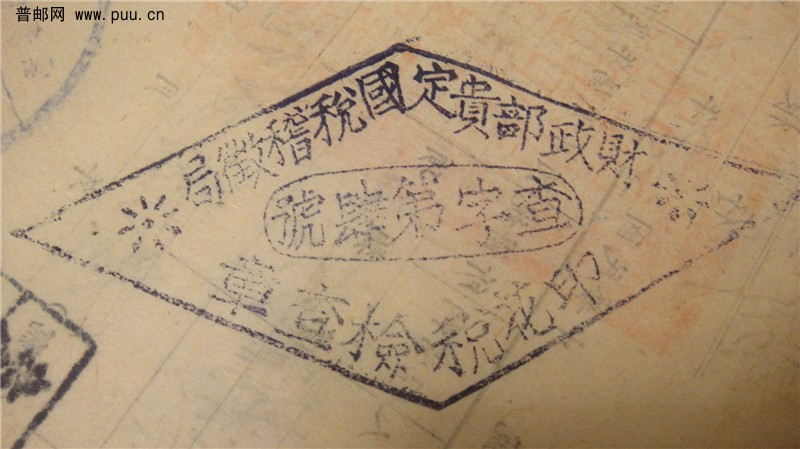 普邮网 www.puu.cn
財政部貴定國稅稽徵局
查字第肆號
印花稅檢查章